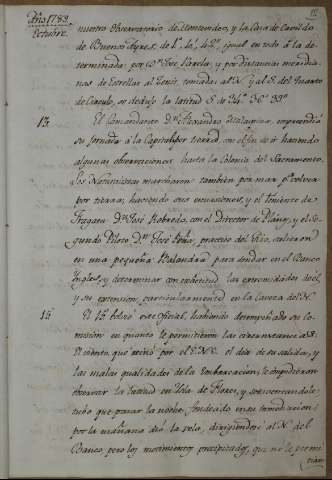 Año 1789
Octubre.
nuestro Observatorio, de Montevideo, y la Casa de Cavildo
de Buenos Ayres, de igual en todo à la de
terminada por Dn. José Varela; y por distancias meridia
nas de Estrellas al Zenit, tomadas al N. y al S. del Quarto
de Circulo, se dedujo la latitud S. de 34° 36' 39"
13. El Comandante Dn. Alexandro Malaspina, emprendió
su jornada à la Capital por tierra con el fin de ir haciendo
algunas observaciones hasta la Colonia del Sacramento.
Los Naturalistas marcharon tambien por mar p.a volver
por tierra, haciendo sus excursiones, y el teniente de
Fragata Dn. José Robredo, con el Director de Planos, y el Se
gundo Piloto Dn. José Peña, practico del Rio, salieron
en una pequeña Balandra para sondar en el Banco
Ingles, y determinar con exactitud las extremidades de el,
y su extension, particularmente en la Caveza del N.
15. El 15 bolvió este oficial, habiendo desempeñado su co
mision en quanto le permitieron las circunstancias.
El viento, que reinó por el E.N.E. el dia de su salida, y
las malas qualidades de la Embarcacion, le impidieron
observar la latitud en Isla de Flores, y sotaventandole
tubo que pasar la noche fondeado
por la mañana dió la vela, dirigiendose al N. del
Banco, pero los movimientos precipitados, que no le permi
tian